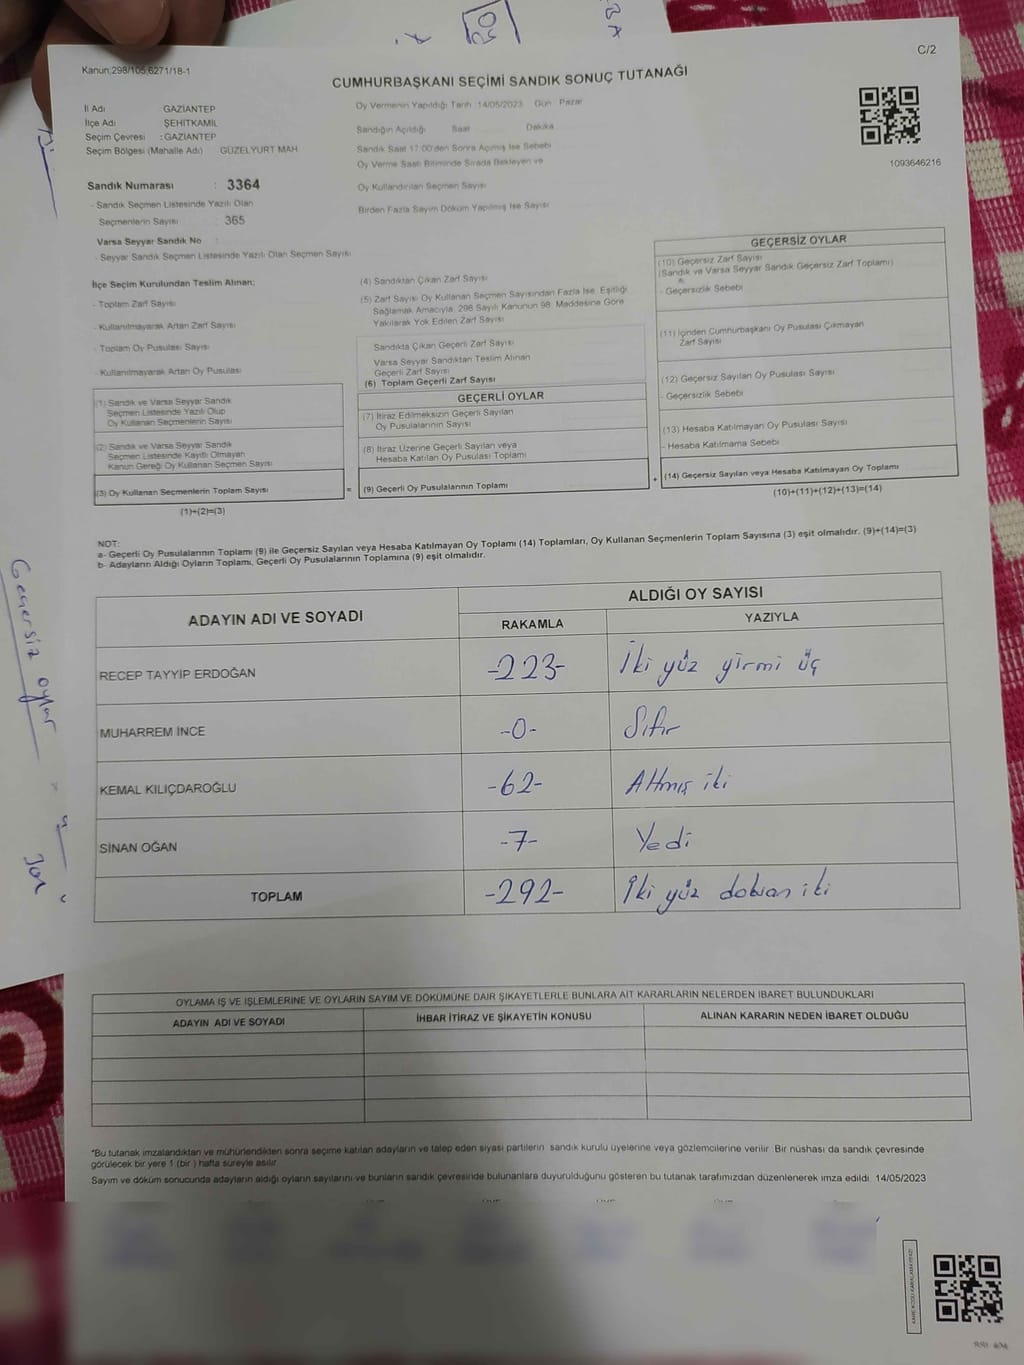 C/2
Kanun:298/105,6271/18-1
CUMHURBAŞKANI SEÇİMİ SANDIK SONUÇ TUTANAĞI
İl Adı GAZİANTEP
İlçe Adı ŞEHİTKAMİL
Seçim Çevresi : GAZİANTEP
Seçim Bölgesi (Mahalle Adı) GÜZELYURT MAH
Sandık Numarası : 3364
- Sandık Seçmen Listesinde Yazılı Olan
Seçmenlerin Sayısı : 365
Varsa Seyyar Sandık No :
- Seyyar Sandık Seçmen Listesinde Yazılı Olan Seçmen Sayısı
Oy Vermenin Yapıldığı Tarih :14/05/2023 Gün : Pazar
Sandığın Açıldığı Saat Dakika
Sandık Saat 17:00'den Sonra Açılmış İse Sebebi
Oy Verme Saati Bitiminde Sırada Bekleyen ve
Oy Kullandırılan Seçmen Sayısı
Birden Fazla Sayım Döküm Yapılmış İse Sayısı
1093646216
İlçe Seçim Kurulundan Teslim Alınan;
- Toplam Zarf Sayısı
- Kullanılmayarak Artan Zarf Sayısı
- Toplam Oy Pusulası Sayısı
- Kullanılmayarak Artan Oy Pusulası
(1) Sandık ve Varsa Seyyar Sandık
Seçmen Listesinde Yazılı Olup
Oy Kullanan Seçmenlerin Sayısı
(2) Sandık ve Varsa Seyyar Sandık
Seçmen Listesinde Kayıtlı Olmayan
Kanun Gereği Oy Kullanan Seçmen Sayısı
(3) Oy Kullanan Seçmenlerin Toplam Sayısı
(1)+(2)=(3)
(4) Sandıktan Çıkan Zarf Sayısı
(5) Zarf Sayısı Oy Kullanan Seçmen Sayısından Fazla İse, Eşitliği
Sağlamak Amacıyla, 298 Sayılı Kanunun 98. Maddesine Göre
Yakılarak Yok Edilen Zarf Sayısı
Sandıkta Çıkan Geçerli Zarf Sayısı
Varsa Seyyar Sandıktan Teslim Alınan
Geçerli Zarf Sayısı
(6) Toplam Geçerli Zarf Sayısı
GEÇERLİ OYLAR
(7) İtiraz Edilmeksizin Geçerli Sayılan
Oy Pusulalarının Sayısı
(8) İtiraz Üzerine Geçerli Sayılan veya
Hesaba Katılan Oy Pusulası Toplamı
= (9) Geçerli Oy Pusulalarının Toplamı
GEÇERSİZ OYLAR
(10) Geçersiz Zarf Sayısı
(Sandık ve Varsa Seyyar Sandık Geçersiz Zarf Toplamı)
- Geçersizlik Sebebi
(11) İçinden Cumhurbaşkanı Oy Pusulası Çıkmayan
Zarf Sayısı
(12) Geçersiz Sayılan Oy Pusulası Sayısı
- Geçersizlik Sebebi
(13) Hesaba Katılmayan Oy Pusulası Sayısı
- Hesaba Katılmama Sebebi
+ (14) Geçersiz Sayılan veya Hesaba Katılmayan Oy Toplamı
(10)+(11)+(12)+(13)=(14)
NOT:
a- Geçerli Oy Pusulalarının Toplamı (9) ile Geçersiz Sayılan veya Hesaba Katılmayan Oy Toplamı (14) Toplamları, Oy Kullanan Seçmenlerin Toplam Sayısına (3) eşit olmalıdır. (9)+(14)=(3)
b- Adayların Aldığı Oyların Toplamı, Geçerli Oy Pusulalarının Toplamına (9) eşit olmalıdır.
ADAYIN ADI VE SOYADI
ALDIĞI OY SAYISI
RAKAMLA YAZIYLA
RECEP TAYYİP ERDOĞAN -223- İki yüz yirmi üç
MUHARREM İNCE -0- Sıfır
KEMAL KILIÇDAROĞLU -62- Altmış iki
SİNAN OĞAN -7- Yedi
TOPLAM -292- İki yüz doksan iki
Geçersiz oylar
OYLAMA İŞ VE İŞLEMLERİNE VE OYLARIN SAYIM VE DÖKÜMÜNE DAİR ŞİKAYETLERLE BUNLARA AİT KARARLARIN NELERDEN İBARET BULUNDUKLARI
ADAYIN ADI VE SOYADI İHBAR İTİRAZ VE ŞİKAYETİN KONUSU ALINAN KARARIN NEDEN İBARET OLDUĞU
*Bu tutanak imzalandıktan ve mühürlendikten sonra seçime katılan adayların ve talep eden siyasi partilerin sandık kurulu üyelerine veya gözlemcilerine verilir. Bir nüshası da sandık çevresinde
görülecek bir yere 1 (bir ) hafta süreyle asılır.
Sayım ve döküm sonucunda adayların aldığı oyların sayılarını ve bunların sandık çevresinde bulunanlara duyurulduğunu gösteren bu tutanak tarafımızdan düzenlenerek imza edildi. 14/05/2023